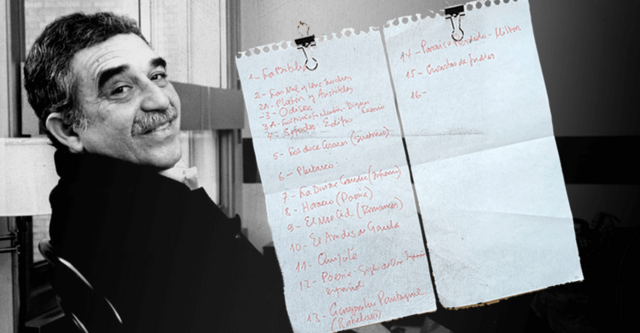 1- La Biblia
2- Las Mil y Una Noches
2A- Platón y Aristóteles
-3- Odisea
3A-
4- Sófocles- Edipo
5- Los doce Césares (Suetonio)
6- Plutarco.
7- La Divina Comedia (Infierno)
8- Horacio (Poesía)
9- El Mio Cid (Romances)
10- El Amadis de Gaula
11- Quijote
12- Poesía- Siglo de Oro
español
13- Gargantua Pantagruel
(Rabelais)
14- Paraiso Perdido- Milton
15- Cuentos de Hadas
16-